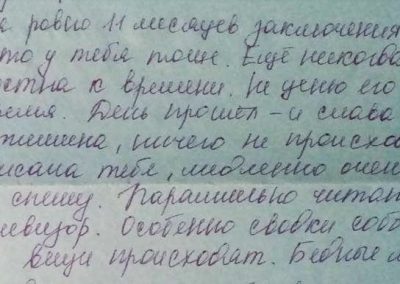 ровно 11 месяцев заключения
что у тебя тоже. Ещё никогда
к времени. Не ценю его
День прошёл – и слава
ничего не происхо
тебе, медленно очен
спешу. Параллельно читаю
евизор. Особенно сводки соб
вещи происходят. Бедные